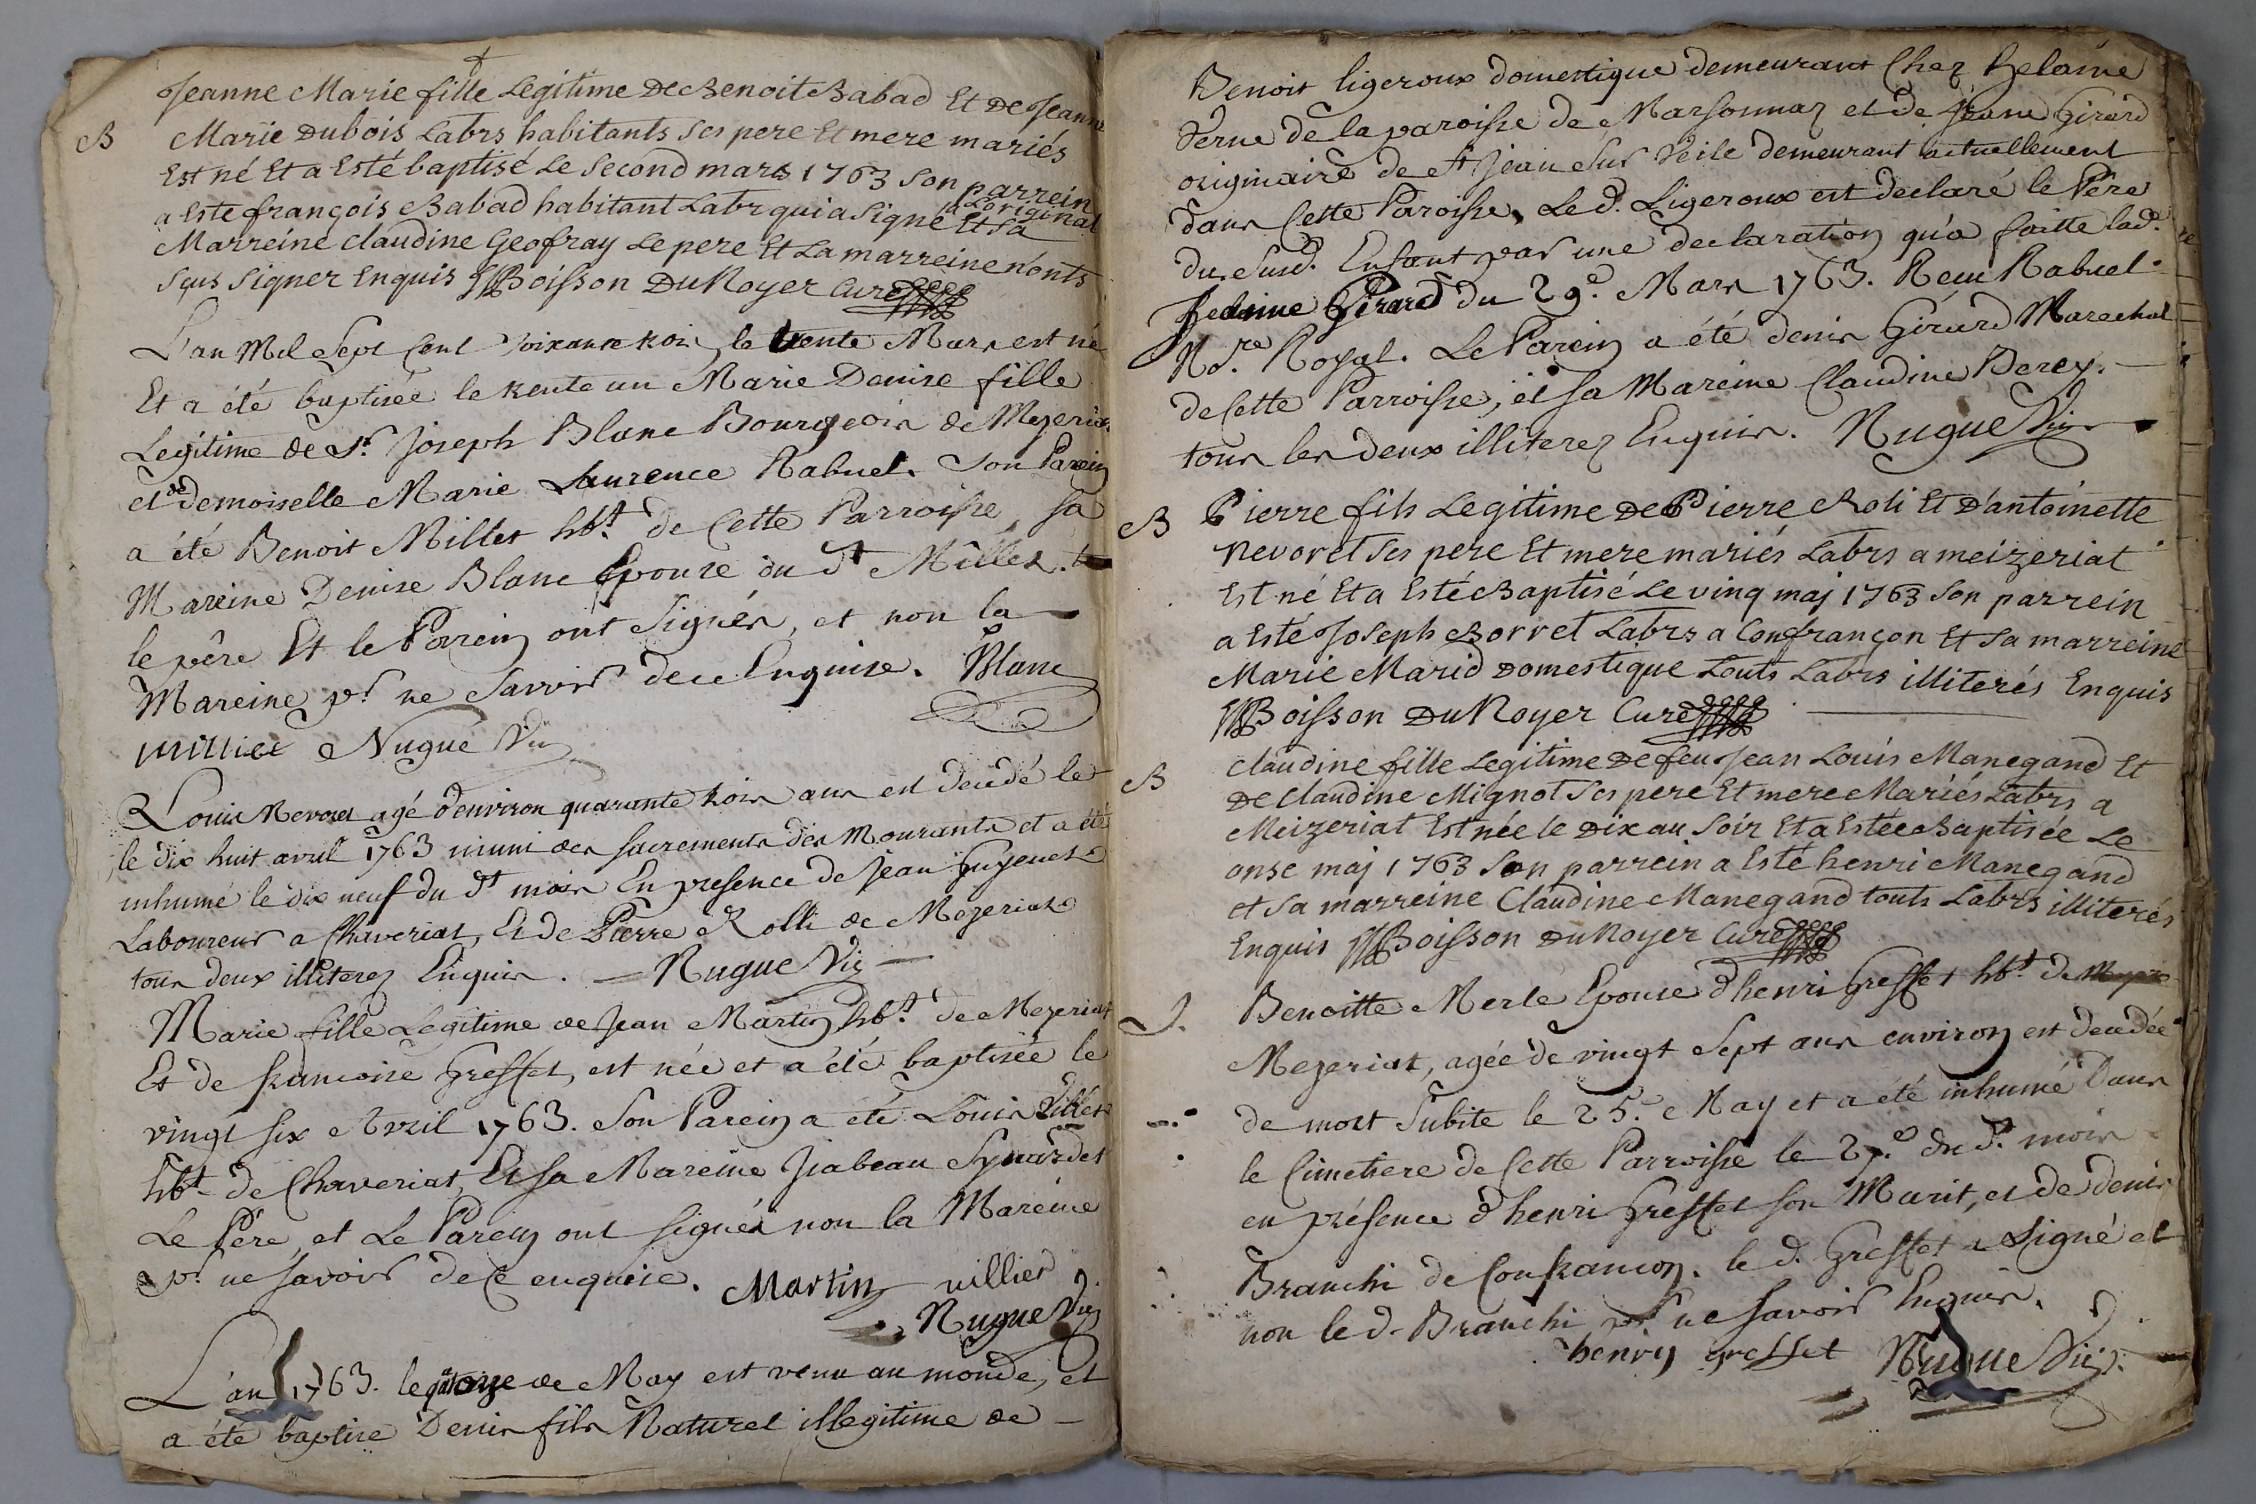 Jeanne Marie fille Legitime De Benoit Babad Et De Jeanne
B Marie Dubois Labrs habitants Ses pere Et mere mariés
Est né Et a Esté baptisé Le Second mars 1763 Son parrein
a Este françois Babad habitant Labr qui a Signé a L'original Et Sa
Marreine Claudine Geofray Le pere Et La marreine n'onts
Sçus Signer Enquis Boisson Du Noyer Curé
L'an Mil Sept Cent soixante trois le trente Mars est né
Et a été baptisée le trente un Marie Denise fille
Legitime de Sr. Joseph Blanc Bourgeois de Mezeriat
et de demoiselle Marie Laurence Rabuel. Son Parein
a été Benoit Millet hbt. de Cette Parroisse, sa
Mareine Denise Blanc Epouse du dt Millet.
le père Et le Parein ont Signés, et non la
Mareine pr. ne Savoir de ce Enquise. Blanc
Milliet Nugue Vic
Louis Nevoret agé d'environ quarante trois ans est decedé le
le dix huit avril 1763 muni des sacrements des Mourants et a été
inhumé le dix neuf du dt mois En presence de Jean Guyenet
Laboureur a Chaveriat, Et de Pierre Rolli de Mezeriat
tous deux illiterez Enquis. Nugue Vic
Marie fille Legitime de Jean Martin hbt. de Mezeriat
Et de francoise Greffet, est née et a été baptisée le
vingt six Avril 1763. Son Parein a été Louis Villier
hbt. de Chaveriat, Et sa Mareine Isabeau
Le Père, et Le Parein ont signés non la Mareine
pr. ne savoir de Ce enquise. Martin villier
Nugue Vic
L'an 1763. le quatorze de May est venu au monde, et
a été baptise Denis fils Naturel illegitime de
Benoit ligeroux domestique demeurant Chez
Verne de la paroisse de Marsonnaz et de Jeanne Girard
originaire de St Jean Sur Veile demeurant actuellement
dans Cette Paroisse, Le d. Ligeroux est declaré le Père
du Susd. Enfant par une declaration qu'a faitte lad.
Jeanne Girard du 29e. Mars 1763. Reçu Rabuel
Nore. Royal. Le Parein a été denis Girard Marechal
de Cette Parroisse, et sa Mareine Claudine Berey.
tous les deux illiterez Enquis. Nugue Vic
B Pierre fils Legitime De Pierre Roli Et D'antoinette
Nevoret Ses pere Et mere mariés Labrs a meizeriat
Est né Et a Esté Baptisé Le vinq maj 1763 Son parrein
a Esté Joseph Borret Labrs a Confrançon Et Sa marreine
Marie Marid Domestique touts Labrs illiterés Enquis
Boisson Du Noyer Curé
Claudine fille Legitime De feu Jean Louis Manegand Et
B De Claudine Mignot Ses pere Et mere Mariés Labrs a
Meizeriat Est née le Dix au Soir Et a Estée Baptisée Le
onse maj 1763 Son parrein a Esté henri Manegand
et Sa marreine Claudine Manegand touts Labrs illiterés
Enquis Boisson Du Noyer Curé
J. Benoitte Merle Epouse d'henri Greffet hbt. de
Mezeriat, agée de vingt Sept ans environ est decedée
de mort Subite le 25.e May et a été inhumé Dans
le Cimetiere de Cette Parroisse le 27.e du d. mois
en présence d'henri Greffet son Marit, et de denis
Branchi de Confrancon. le d. Greffet a Signé et
non le d. Branchi pr ne savoir Enquis.
henry greffet Nugue Vic.